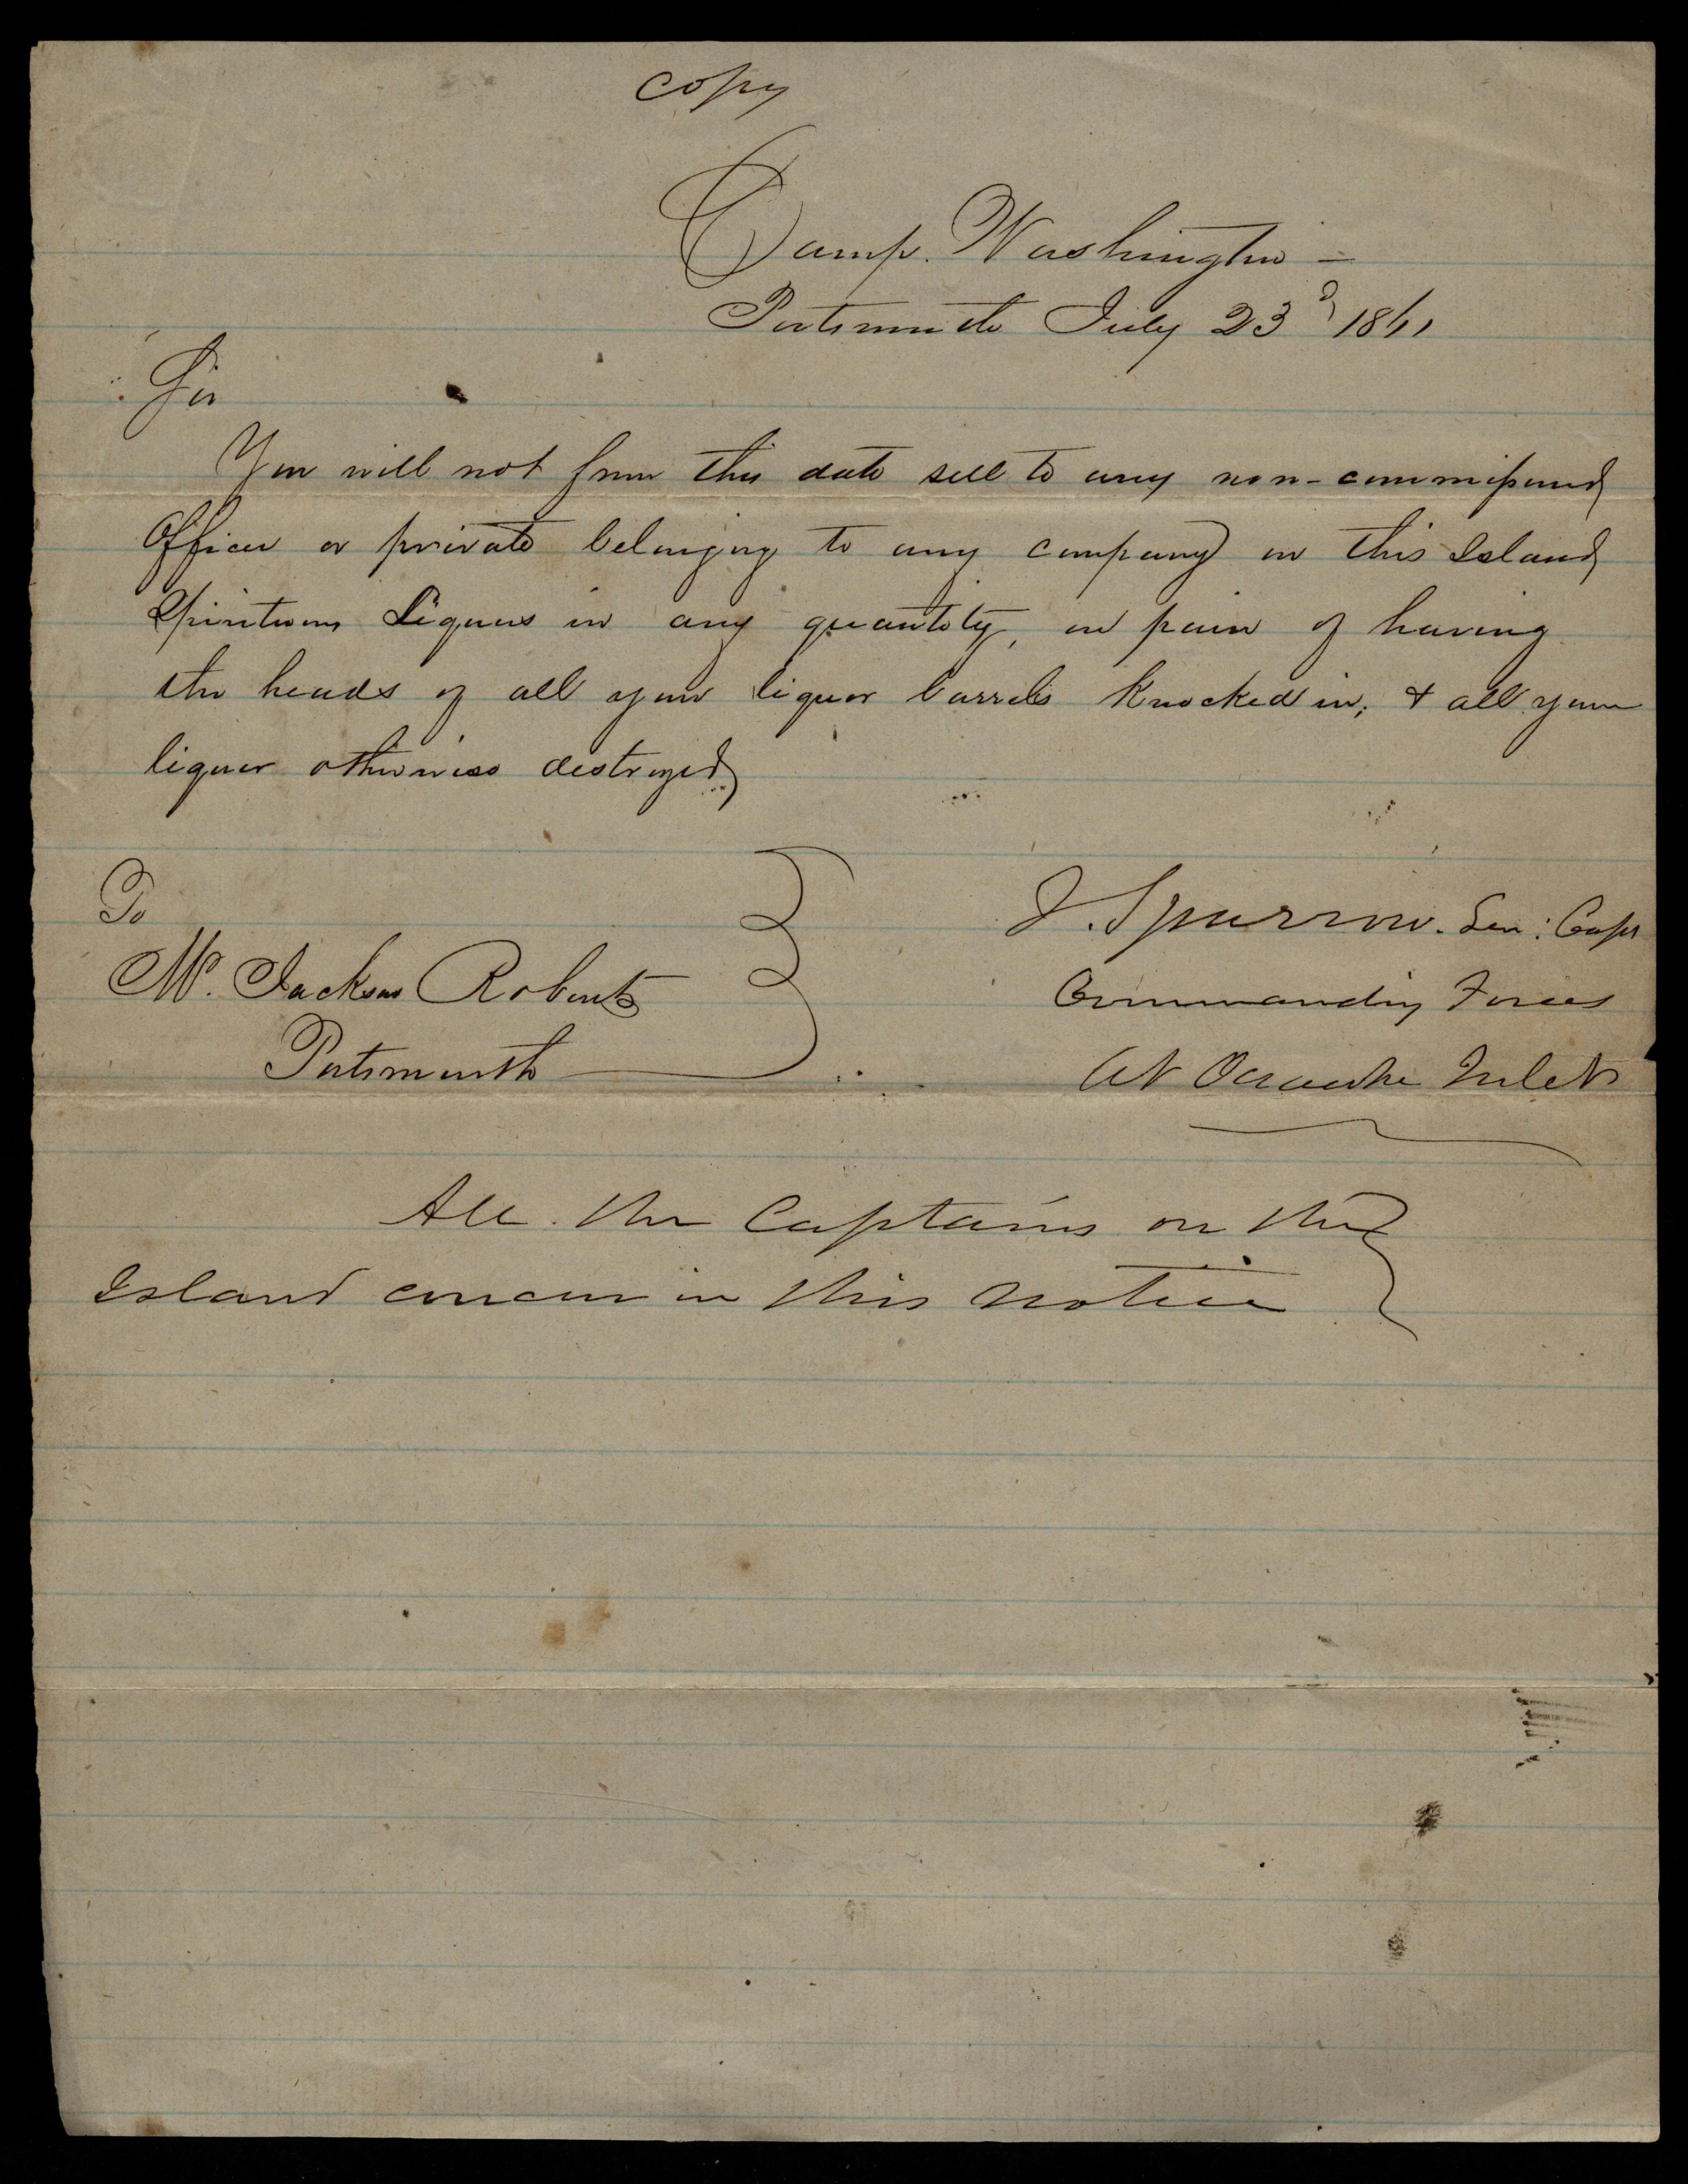 copy
Camp. Washington –
Portsmouth July 23d 1861
Sir
You will not from this date sell to any non-commissioned
Officer or private belonging to any company on this Island
Spirituous Liquors in any quantity, on pain of having
the heads of all your liquor barrels knocked in; & all your
liquor otherwise destroyed
To
Mr. Jackson Roberts
Portsmouth
J. Sparrow. Sen: Capt
Commanding Forces
At Ocracoke Inlet
All the Captains on the
Island concur in this notice